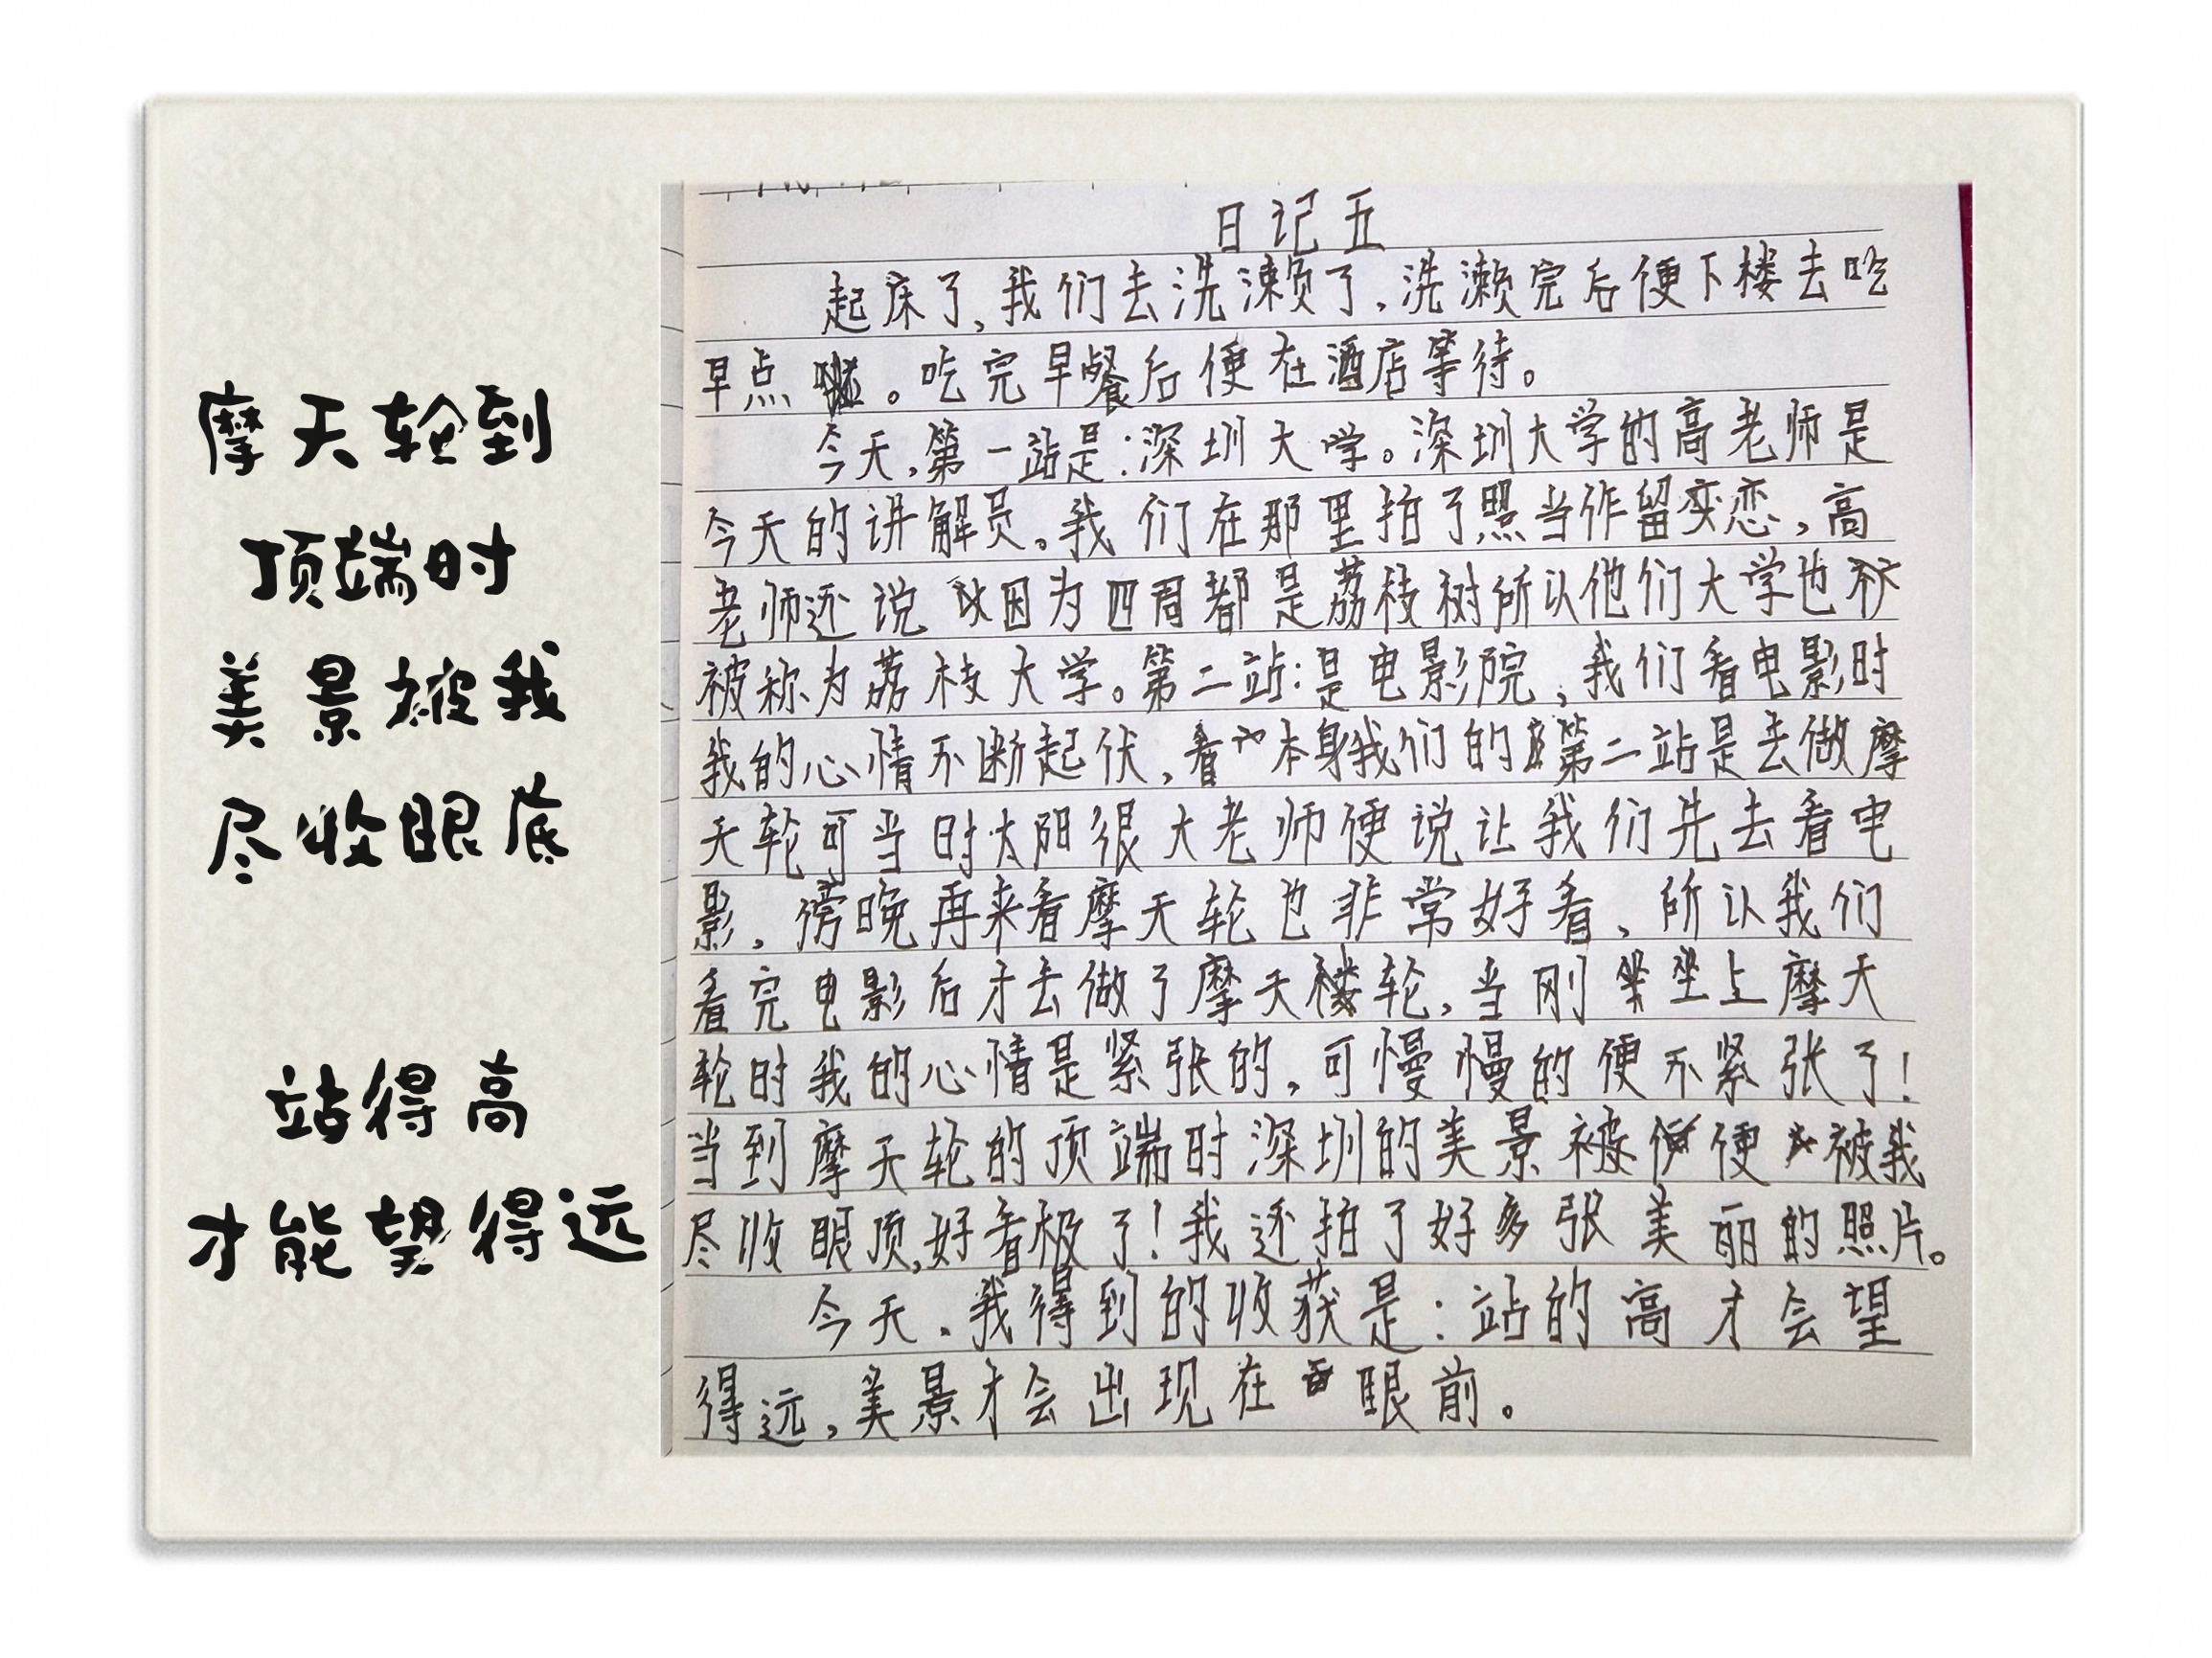 摩天轮到
顶端时
美景被我
尽收眼底
站得高
才能望得远
日记五
起床了,我们去洗濑了,洗濑完后便下楼去吃
早点。吃完早餐后便在酒店等待。
今天,第一站是:深圳大学。深圳大学的高老师是
今天的讲解员。我们在那里拍了照当作留恋,高
老师还说因为四周都是荔枝树所以他们大学也
被称为荔枝大学。第二站:是电影院,我们看电影时
我的心情不断起伏,看本身我们的第二站是去做摩
天轮可当时太阳很大老师便说让我们先去看电
影,傍晚再来看摩天轮也非常好看、所以我们
看完电影后才去做了摩天轮,当刚坐上摩天
轮时我的心情是紧张的,可慢慢的便不紧张了!
当到摩天轮的顶端时深圳的美景被便被我
尽收眼顶,好看极了!我还拍了好多张美丽的照片。
今天,我得到的收获是:站的高才会望
得远,美景才会出现在眼前。